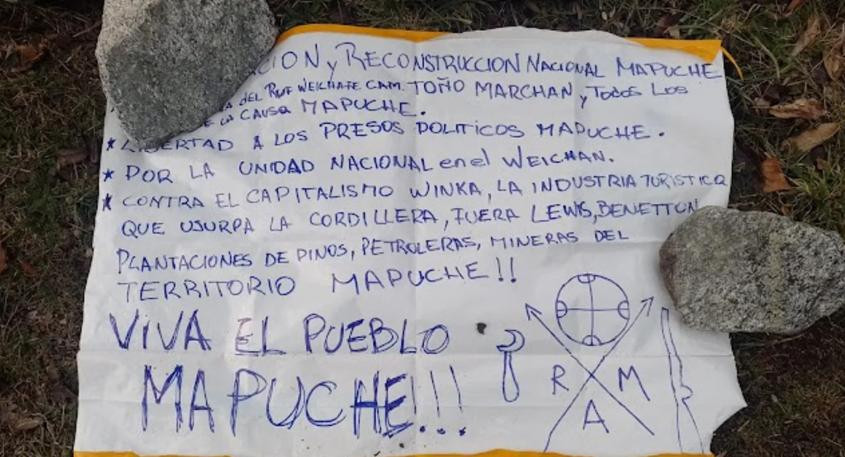 CION y RECONSTRUCCION NACIONAL MAPUCHE
A DEL PEÑI WEICHAFE CAM. TOÑO MARCHAN, y TODOS LOS
E LA CAUSA MAPUCHE.
* LIBERTAD A LOS PRESOS POLITICOS MAPUCHE.
* POR LA UNIDAD NACIONAL en el WEICHAN.
* CONTRA EL CAPITALISMO WINKA, LA INDUSTRIA TURISTICA
QUE USURPA LA CORDILLERA, FUERA LEWIS, BENETTON
PLANTACIONES DE PINOS, PETROLERAS, MINERAS DEL
TERRITORIO MAPUCHE!!
VIVA EL PUEBLO
MAPUCHE!!!
R M
A